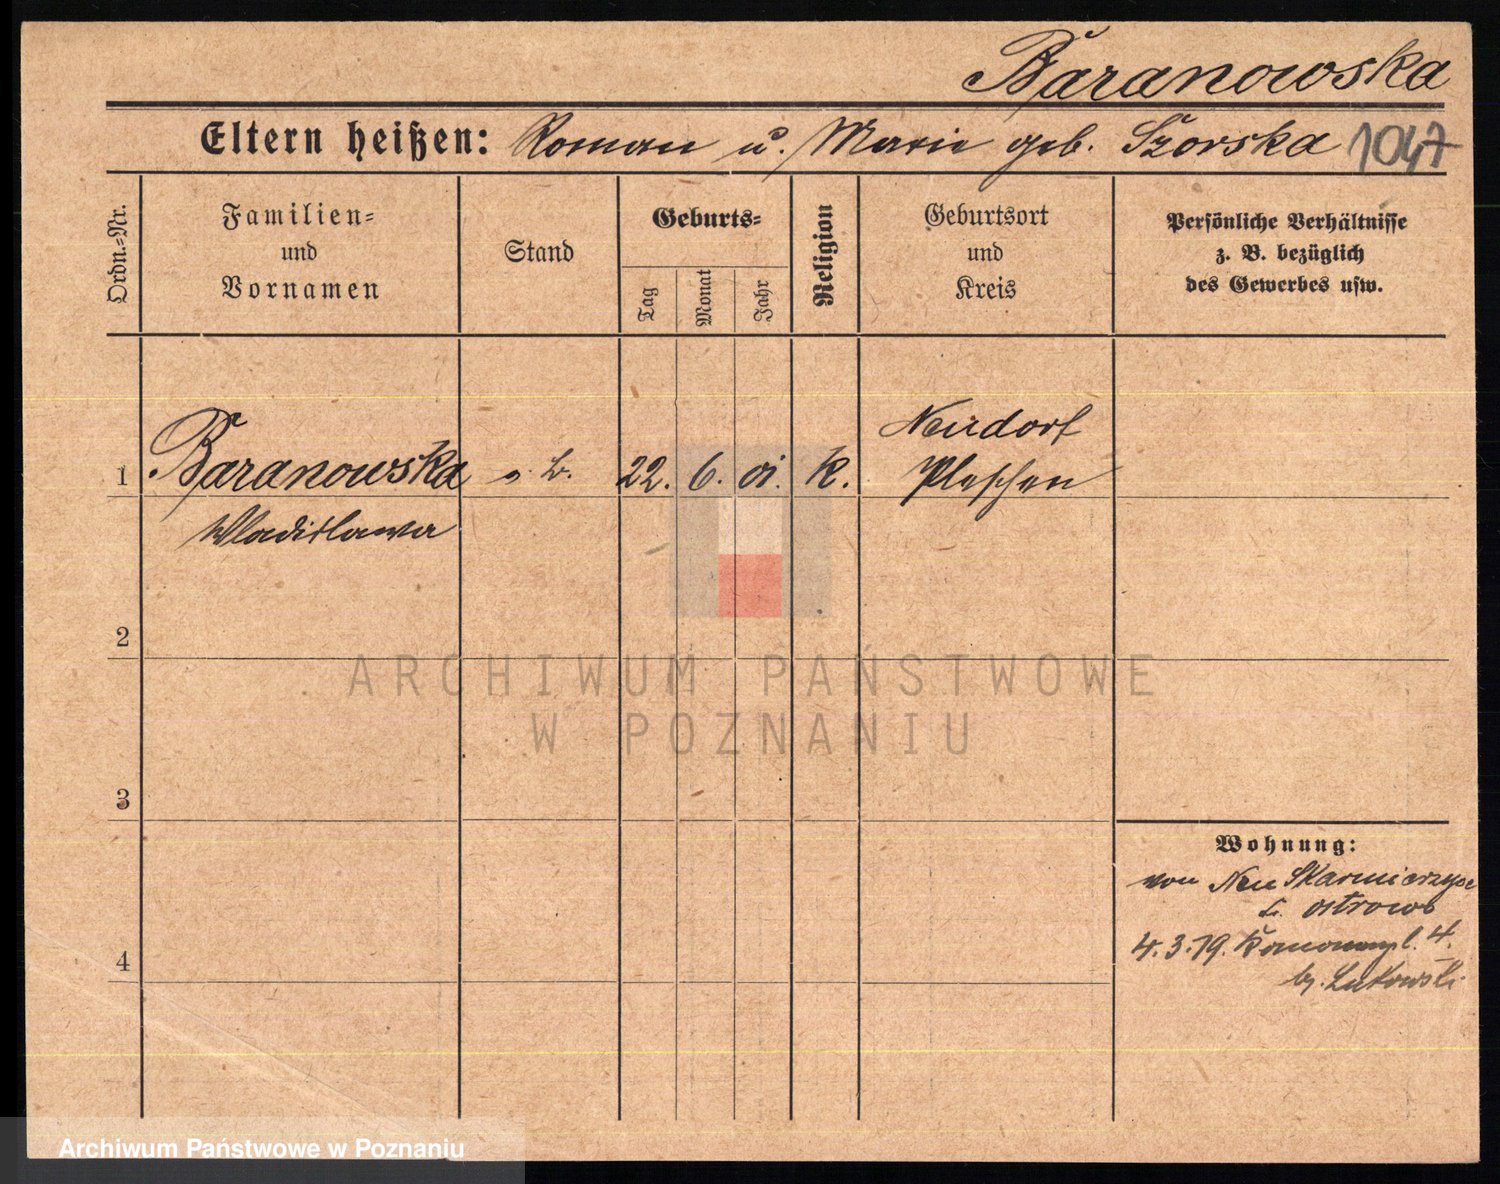 Baranowska
Eltern heißen: Roman u. Marie geb. Szorska 1047
Ordn.=Nr.
Familien=
und
Vornamen
Stand
Geburts=
Tag
Monat
Jahr
Religion
Geburtsort
und
Kreis
Persönliche Verhältnisse
z. B. bezüglich
des Gewerbes usw.
1
Baranowska
Wladislawa
22. 6. 01. k.
Neudorf
Pleschen
2
3
4
Wohnung:
von Neu Skarmierzyce
Ostrowo
4.3.19. 4.
Lukowski
ARCHIWUM PAŃSTWOWE
W POZNANIU
Archiwum Państwowe w Poznaniu